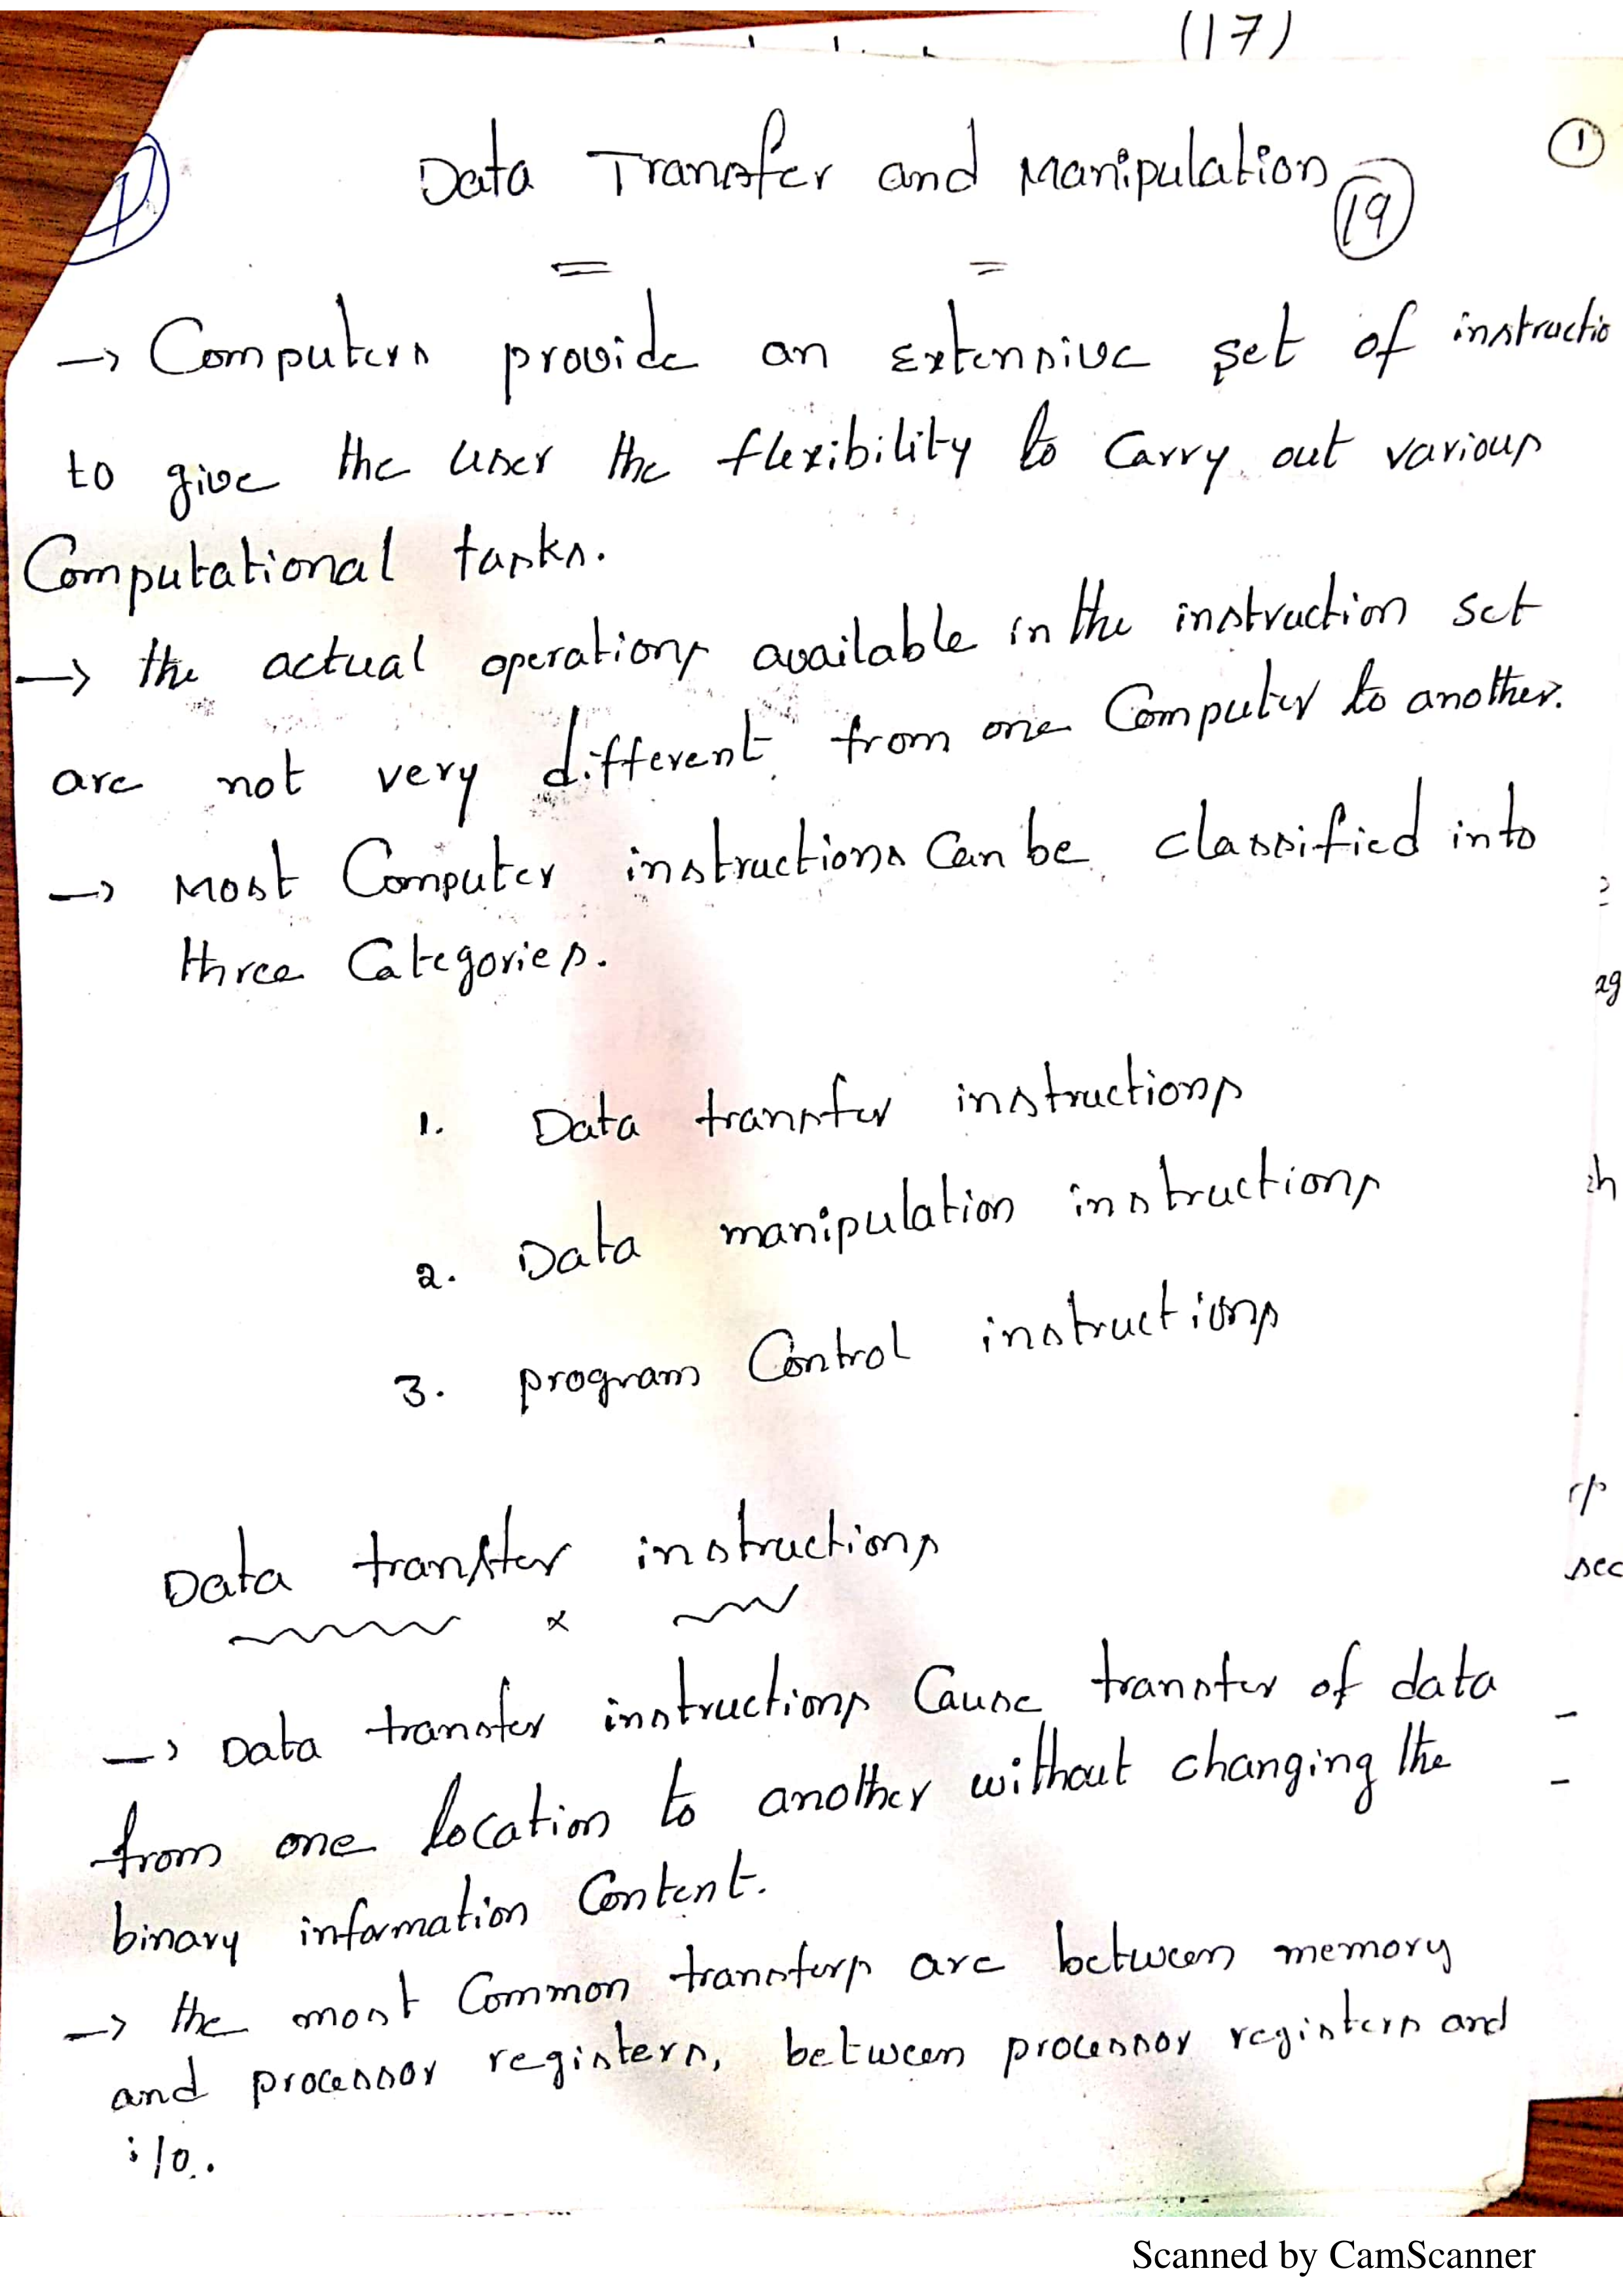 (17)
1
Data Transfer and Manipulation
19
→ Computers provide an extensive set of instructio
to give the user the flexibility to carry out various
Computational tasks.
→ the actual operations available in the instruction set
are not very different from one Computer to another.
→ Most Computer instructions Can be classified into
three Categories.
1. Data transfer instructions
2. Data manipulation instructions
3. program Control instructions
Data transfer instructions
→ Data transfer instructions Cause transfer of data
from one location to another without changing the
binary information Content.
→ the most Common transfers are between memory
and processor registers, between processor registers and
i/o.
Scanned by CamScanner